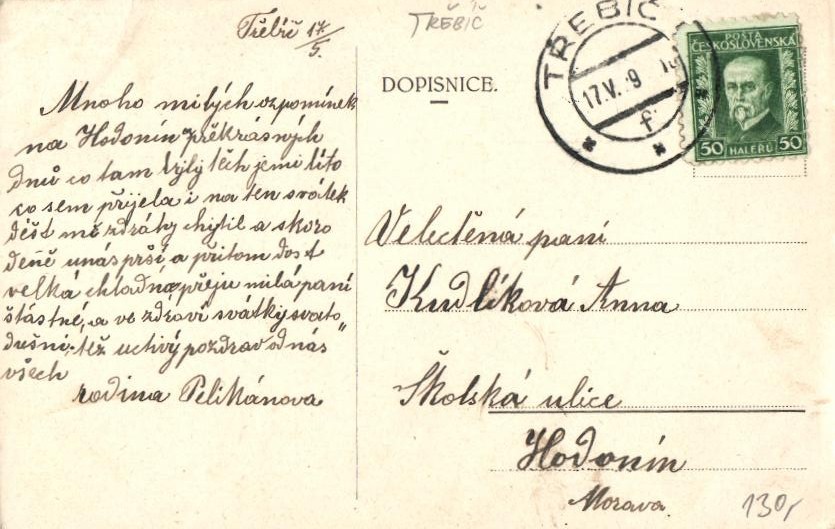 Třebíč 17/5.
TŘEBÍČ
Mnoho milých vzpomínek
na Hodonín překrásných
dnů co tam byly těch jemi líto
co sem přijela i na ten svátek
déšt mě zdráhy chytil a skoro
deňě unás prší a přitom dost
velká chladna přeju milá paní
štástné, a ve zdraví svátky svato
dušní, též uctivý pozdrav od nás
všech
rodina Pelikánova
DOPISNICE.
TŘEBÍČ
17.V. 9
f
POŠTA
ČESKOSLOVENSKÁ
50 HALÉŘŮ 50
Velectěná paní
Kudlíková Anna
Školská ulice
Hodonín
Morava
130,